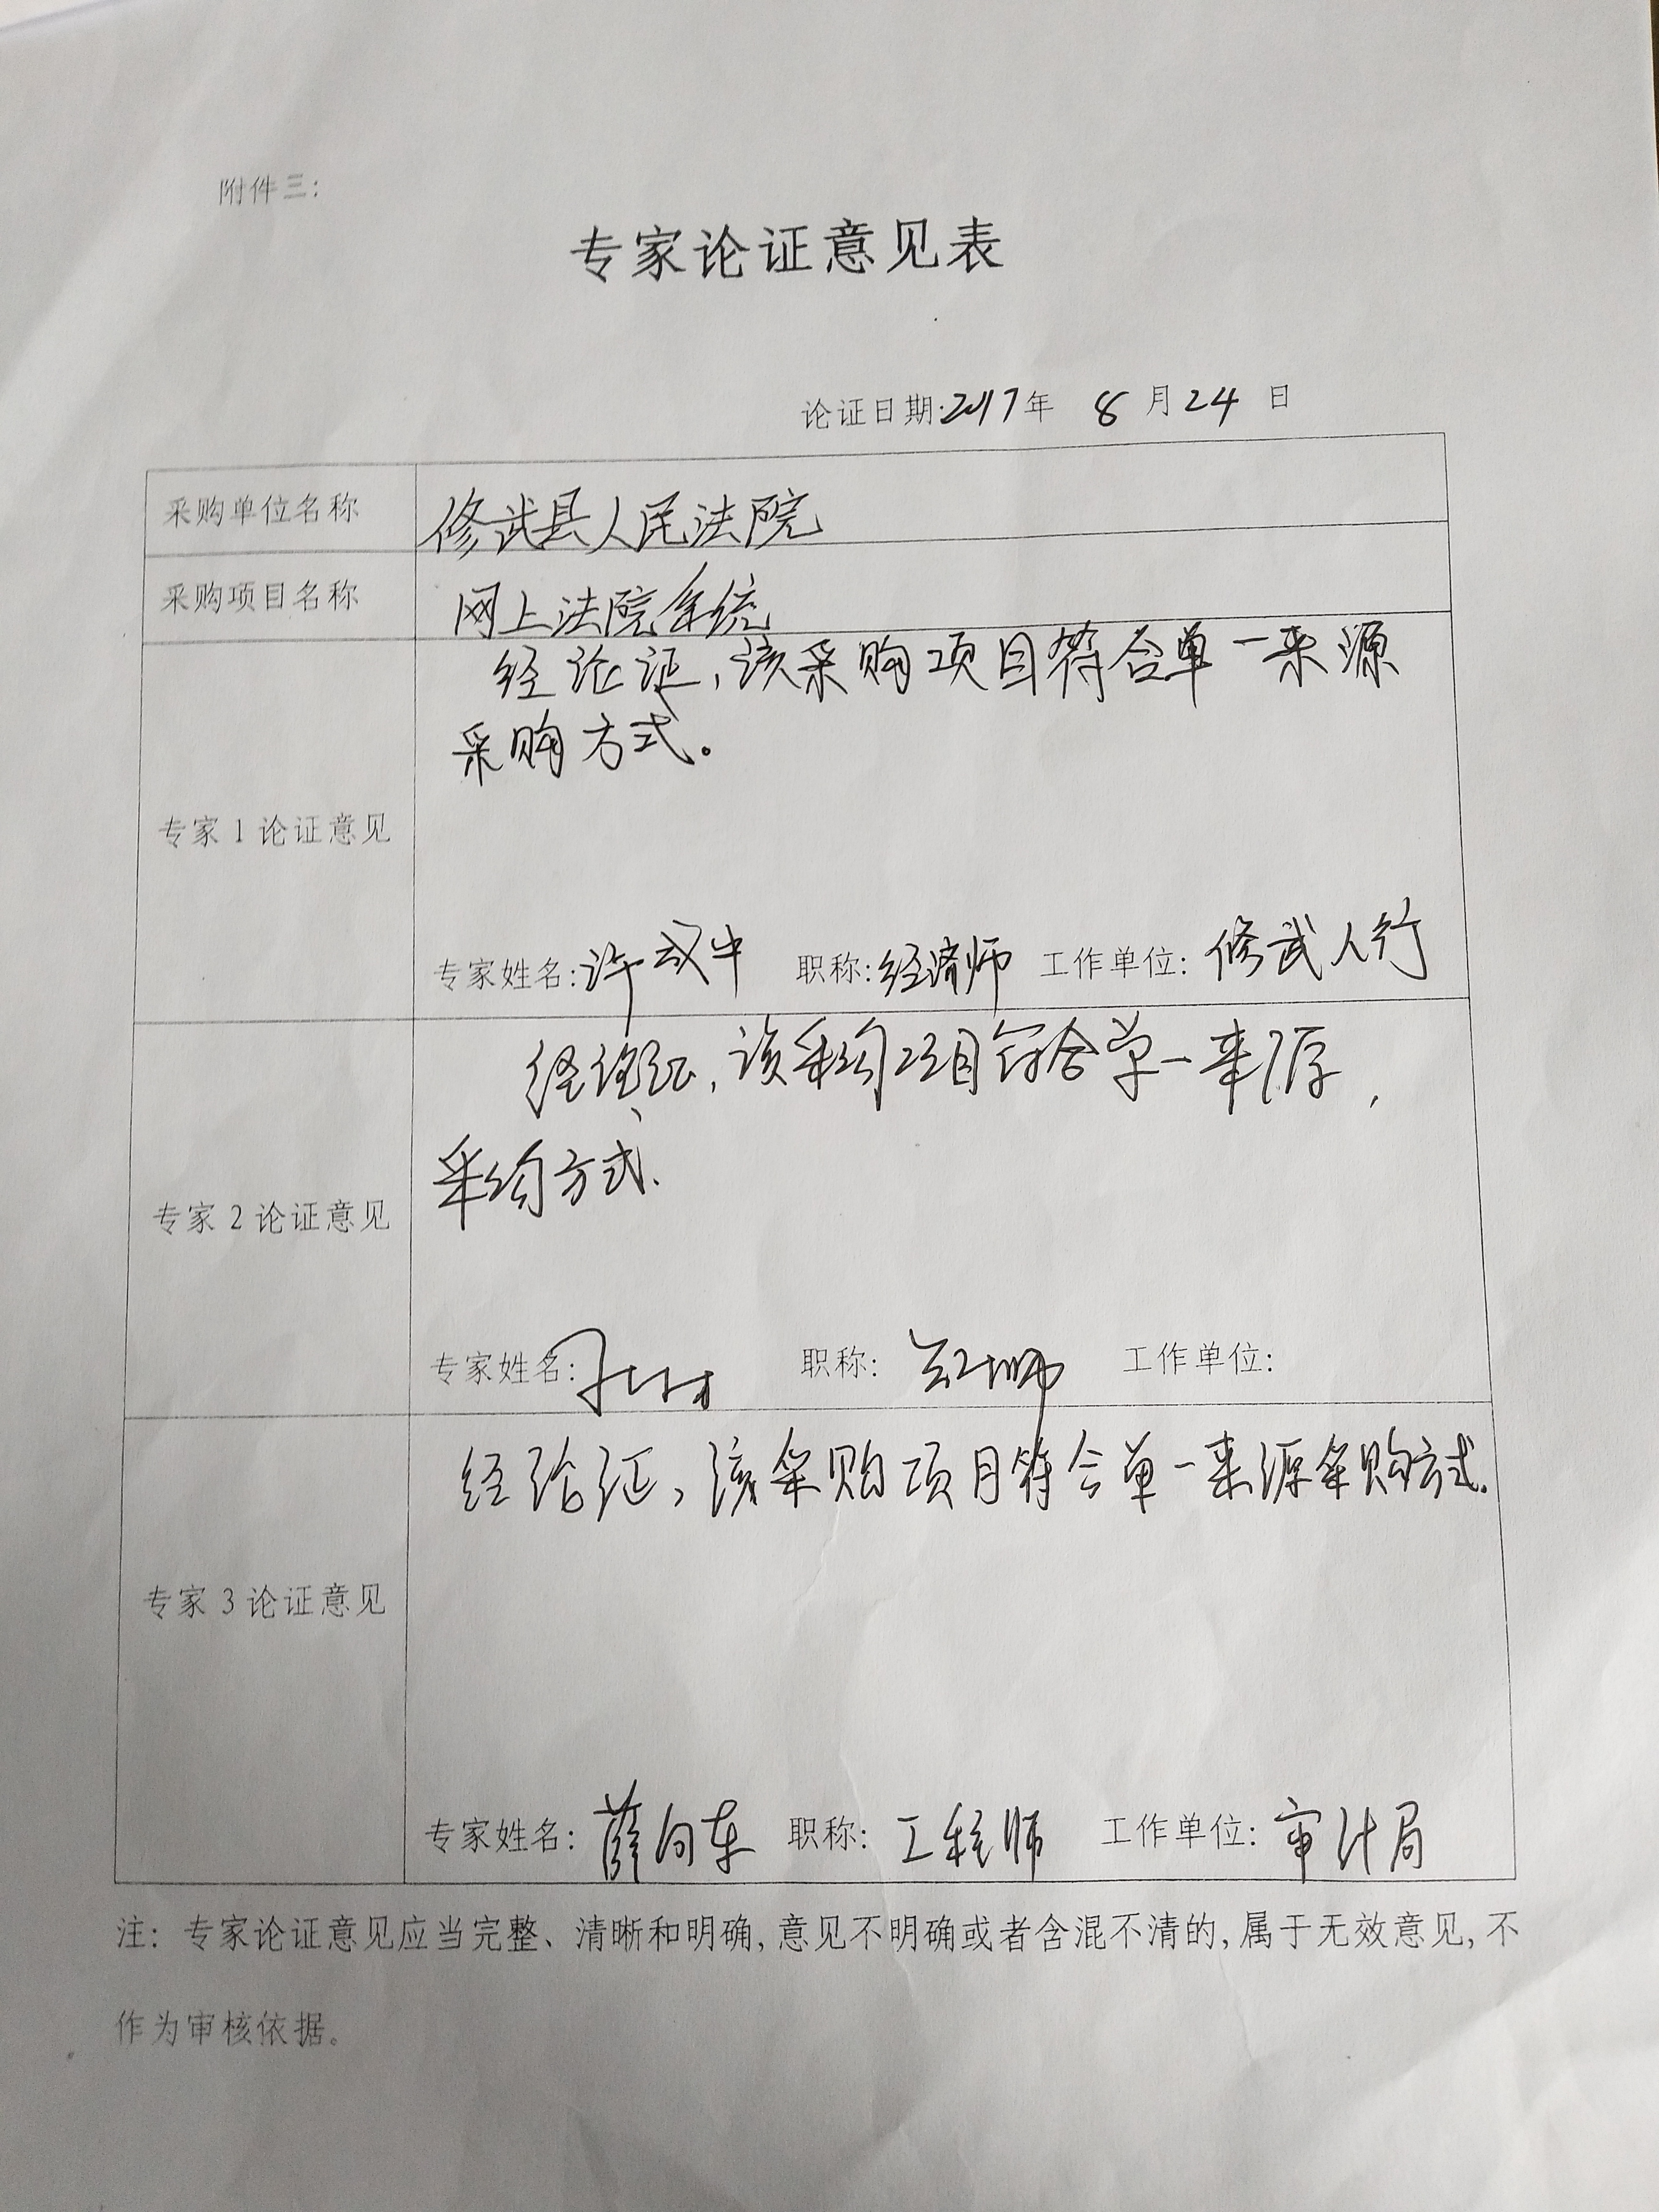 附件三：
专家论证意见表
论证日期:2017年 8月24日
采购单位名称 修武县人民法院
采购项目名称 网上法院系统
经论证，该采购项目符合单一来源
采购方式。
专家1论证意见
专家姓名: 许成中 职称: 经济师 工作单位: 修武人行
经论证，该采购项目符合单一来源
采购方式.
专家2论证意见
专家姓名: 职称: 工作单位:
经论证，该采购项目符合单一来源采购方式.
专家3论证意见
专家姓名: 薛向东 职称: 工程师 工作单位: 审计局
注：专家论证意见应当完整、清晰和明确,意见不明确或者含混不清的,属于无效意见,不
作为审核依据。